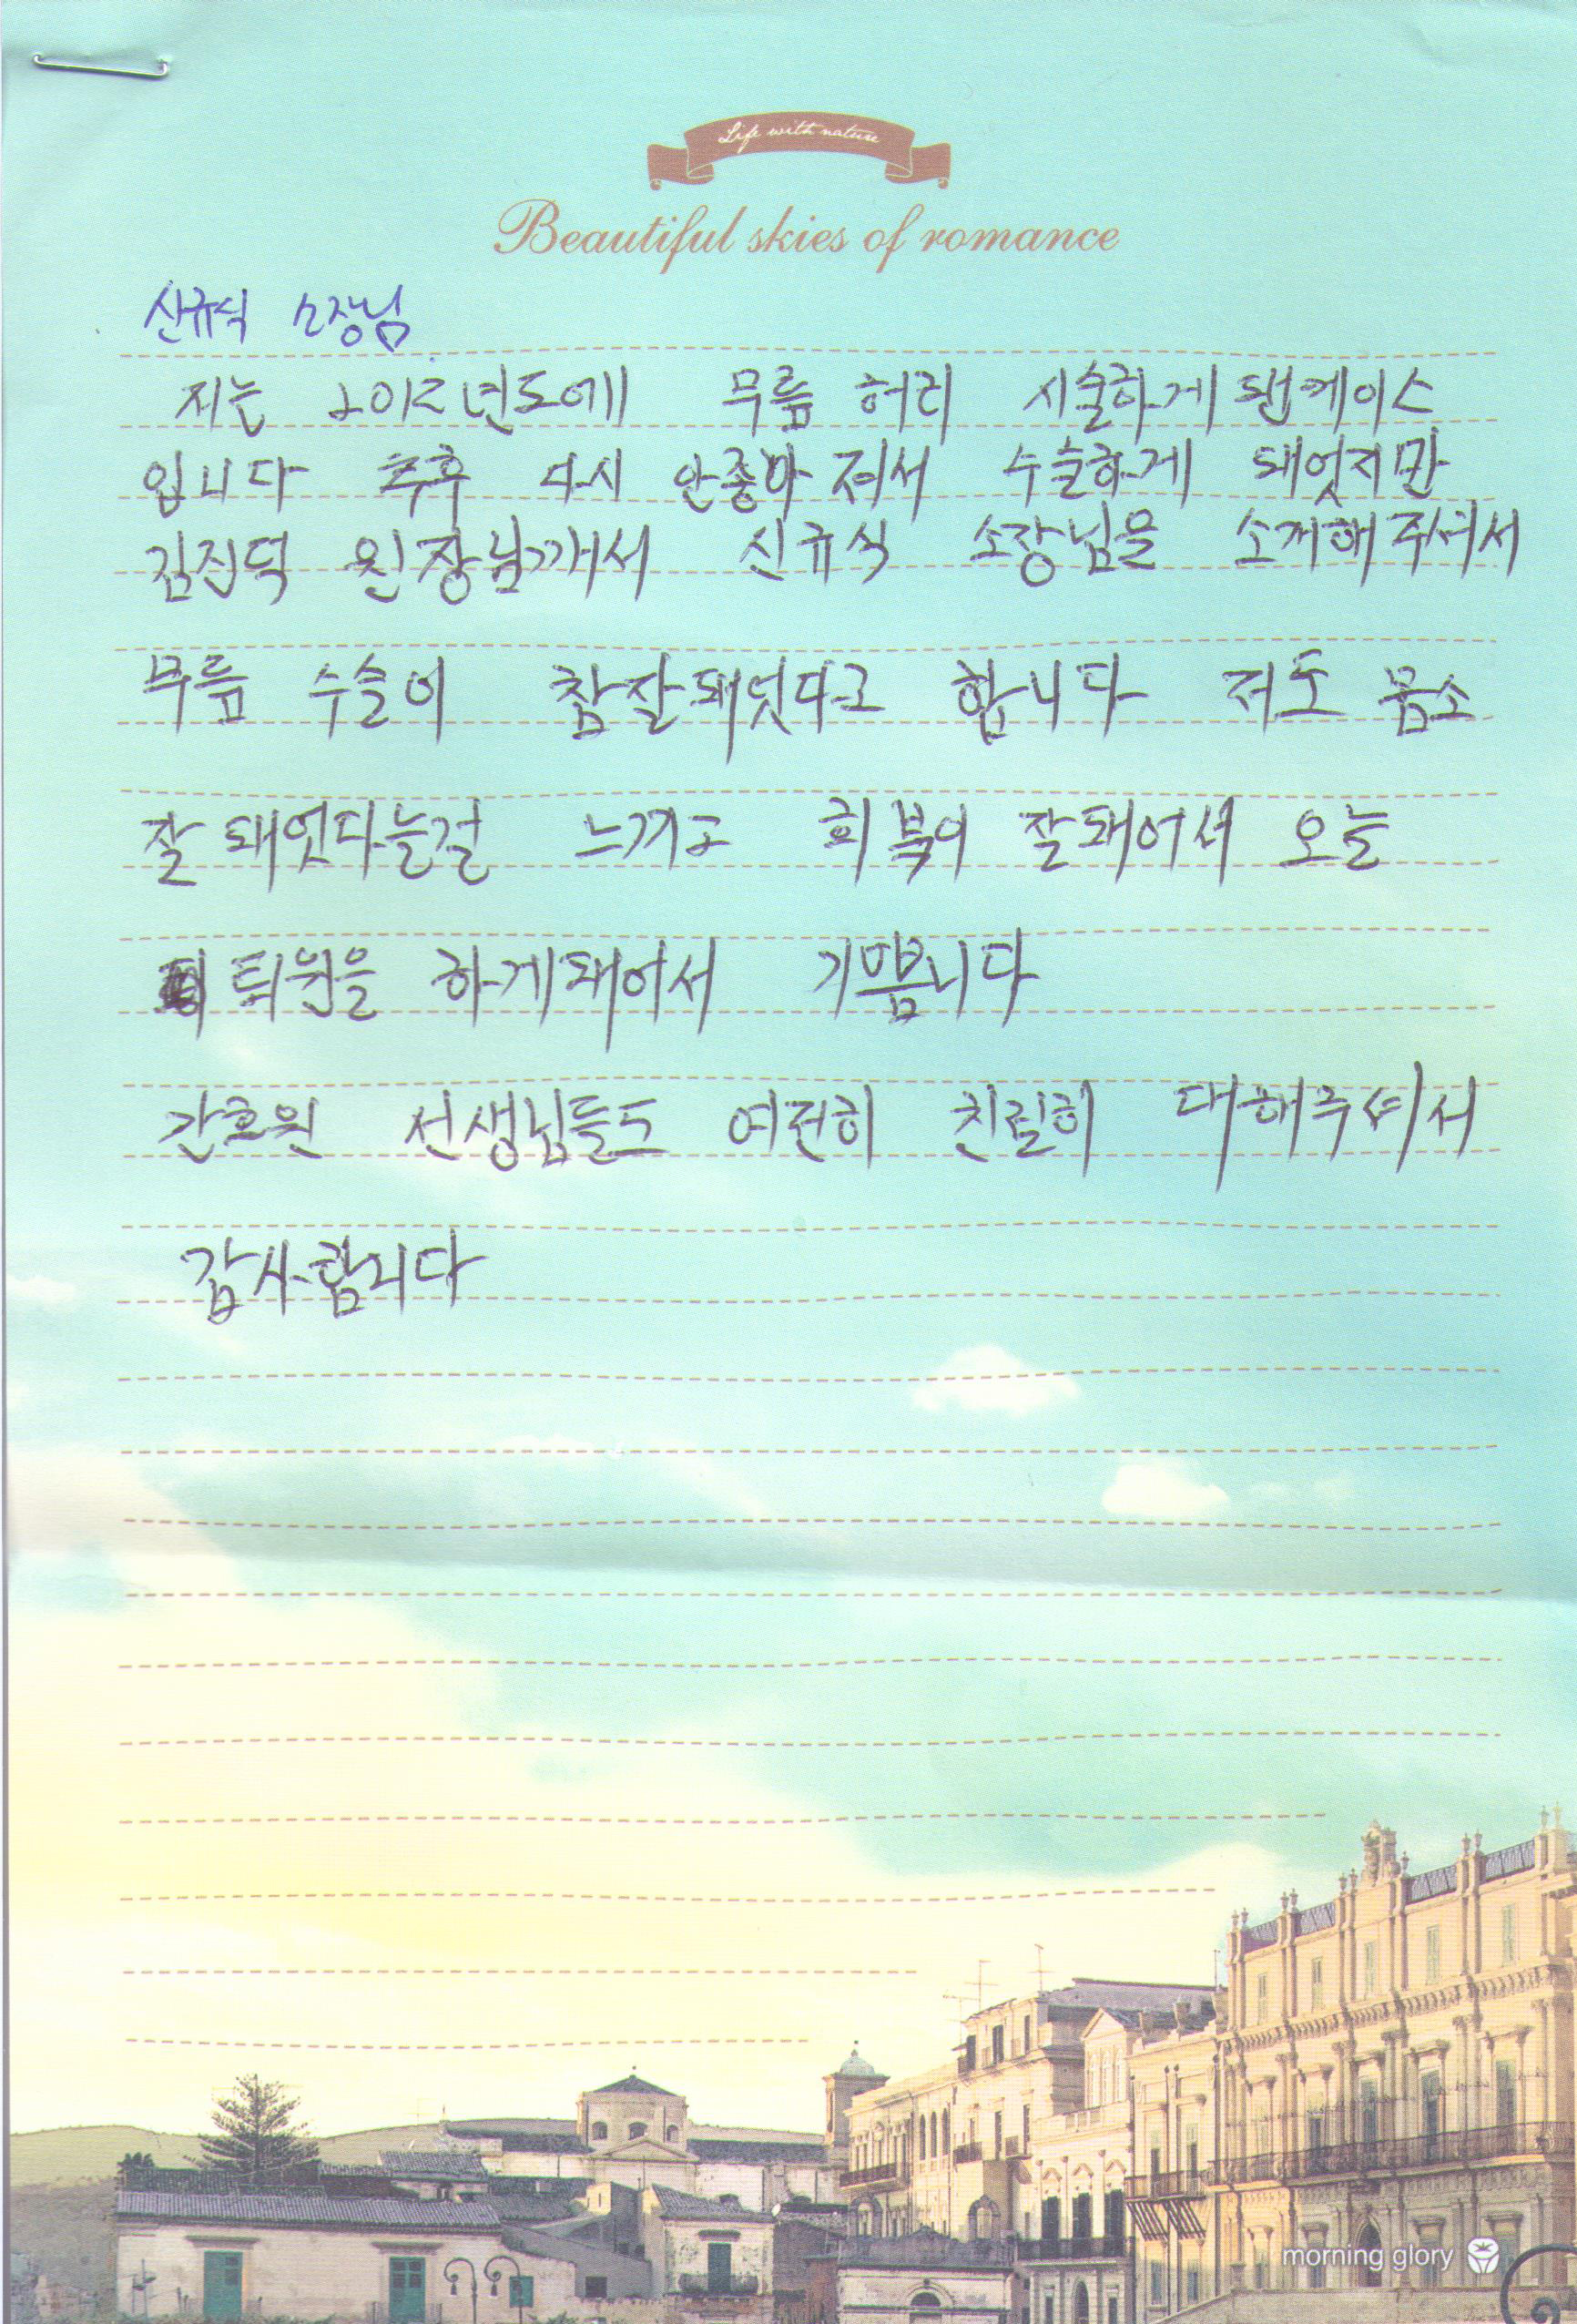 Life with nature
Beautiful skies of romance
신규식 소장님
저는 2012년도에 무릎 허리 시술하게 됀케이스
입니다 추후 다시 안좋아 져서 수술하게 돼었지만
김진덕 원장님께서 신규식 소장님을 소개해 주셔서
무릎 수술이 참잘돼었다고 합니다 저도 몸소
잘 돼었다는걸 느끼고 회복이 잘돼어서 오늘
퇴원을 하게돼어서 기쁨니다
간호원 선생님들도 여전히 친절히 대해주셔서
감사합니다
morning glory